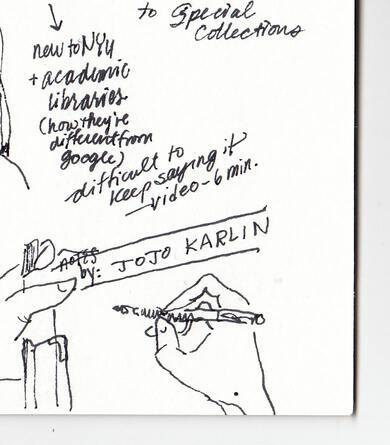 to Special
Collections
new to NYU
+ academic
libraries
(how they're
different from
google)
difficult to
keep saying it
video - 6 min.
NOTES
by: JOJO KARLIN